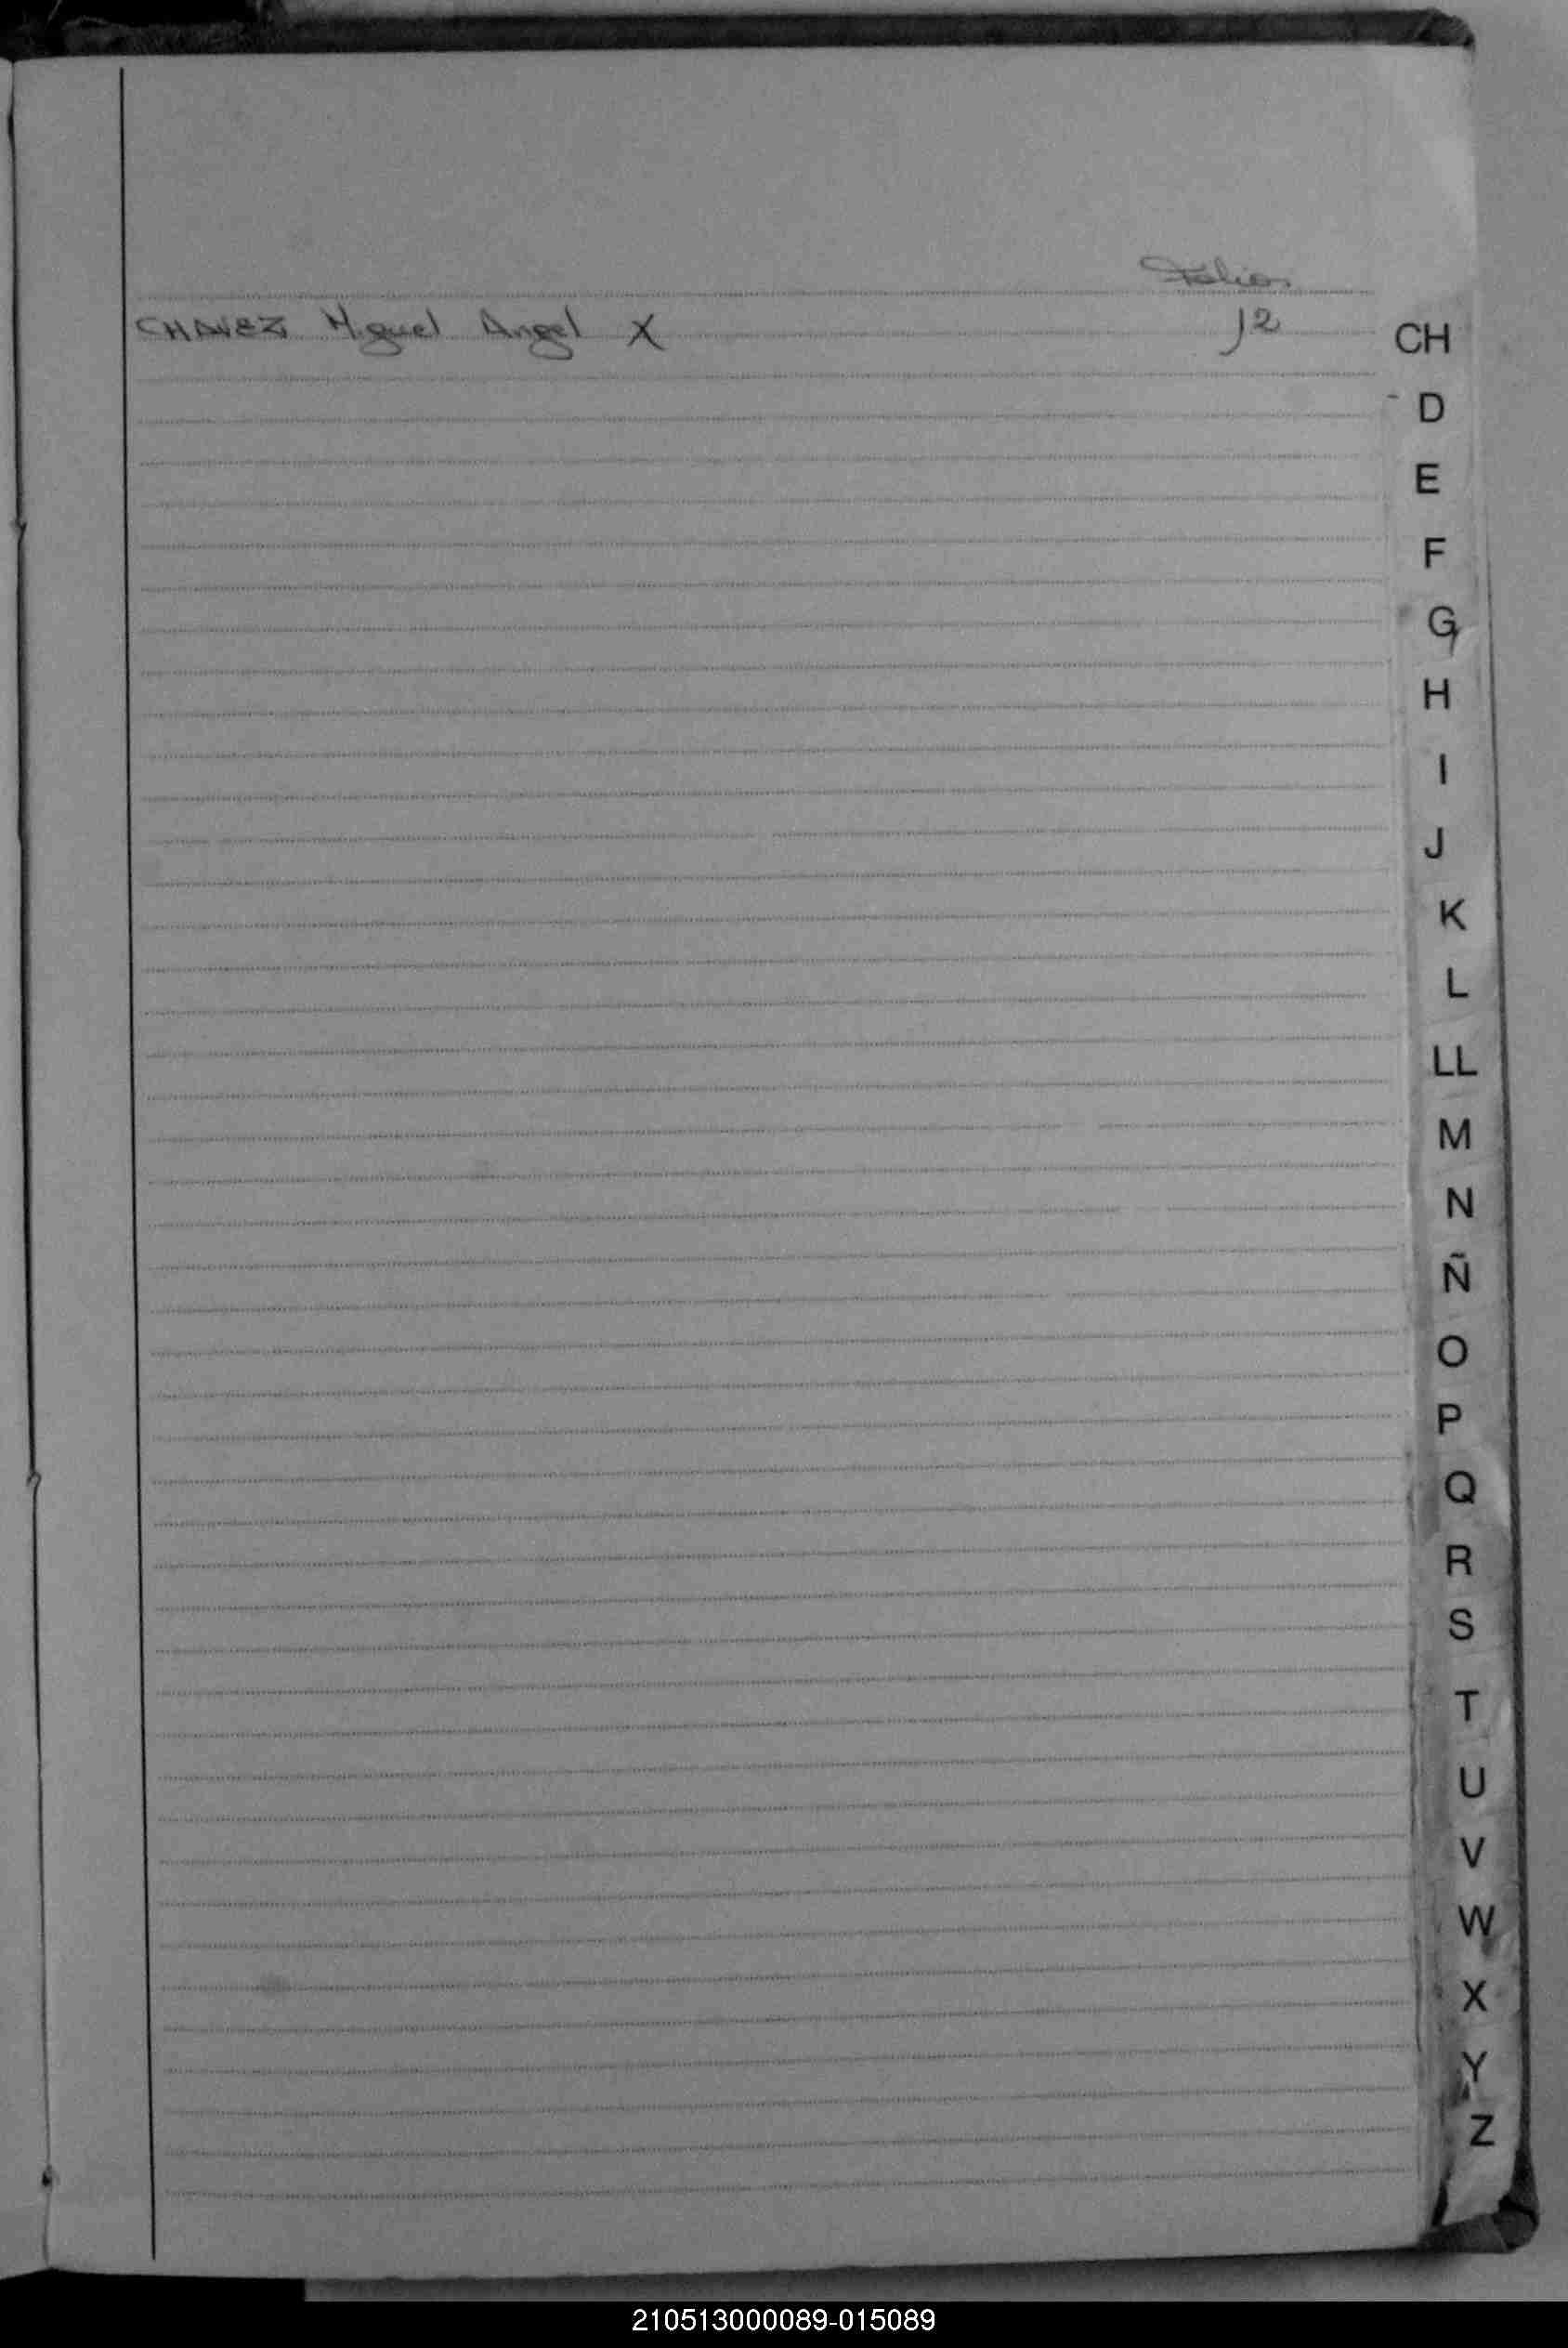 Folios
CHAVEZ Miguel Angel X 12
CH
D
E
F
G
H
I
J
K
L
LL
M
N
Ñ
O
P
Q
R
S
T
U
V
W
X
Y
Z
210513000089-015089